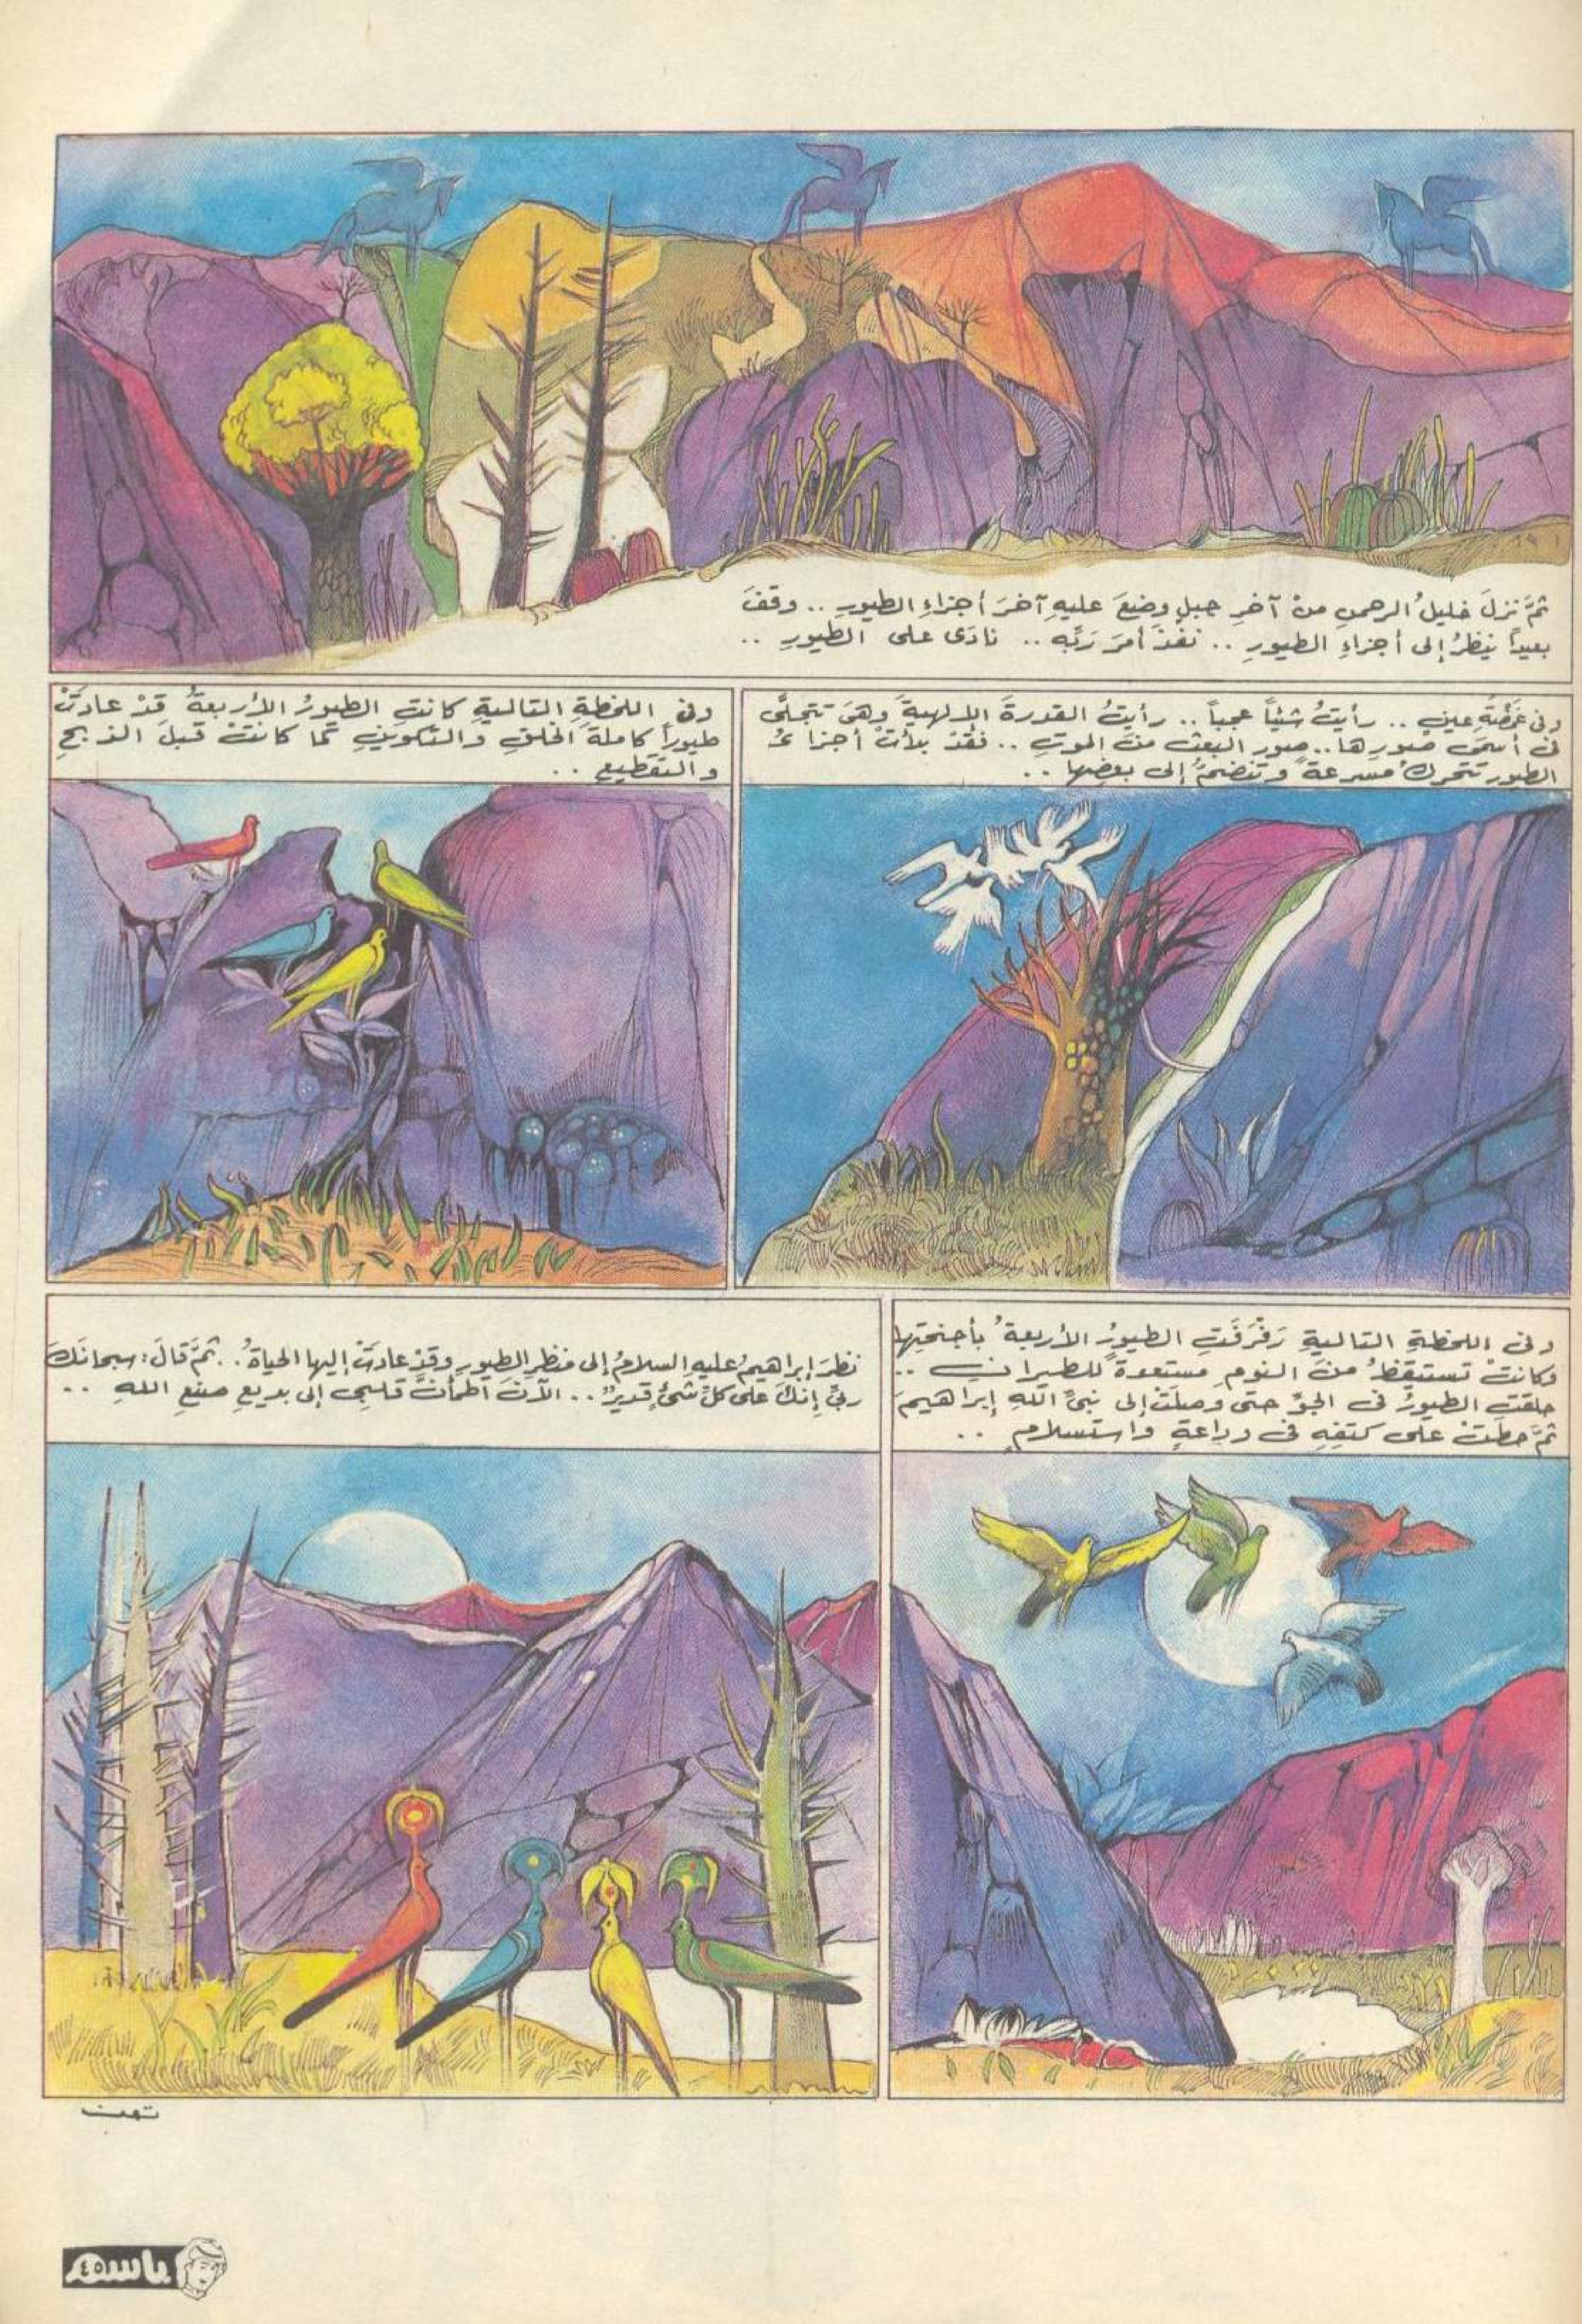 ثمَّ نزلَ خليلُ الرحمنِ منْ آخرِ جبلٍ وضعَ عليهِ آخرَ أجزاءِ الطيورِ .. وقفَ
بعيداً ينظرُ إلى أجزاءِ الطيورِ .. نفذَ أمرَ ربِّه .. نادَى على الطيورِ ..
وفى غمْضَةِ عينٍ .. رأيتُ شيئاً عجباً .. رأيتُ القدرةَ الإلهيةَ وهىَ تتجلَّى
فى أسمَى صورِها .. صورِ البعثِ منَ الموتِ .. فقدْ بدأتْ أجزاءُ
الطيورِ تتحركُ مسرعةً وتنضمُّ إلى بعضِها ..
وفى اللحظةِ التاليةِ كانتِ الطيورُ الأربعةُ قدْ عادتْ
طيوراً كاملةَ الخلقِ والتكوينِ كما كانتْ قبلَ الذبحِ
والتقطيعِ ..
وفى اللحظةِ التاليةِ رَفْرَفَتِ الطيورُ الأربعةُ بأجنحتِها
وكانتْ تستيقظُ منَ النومِ مستعدةً للطيرانِ ..
حلقتِ الطيورُ فى الجوِّ حتى وصلتْ إلى نبىِّ اللهِ إبراهيمَ
ثمَّ حطتْ على كتفِهِ فى وداعةٍ واستسلامٍ ..
نظرَ إبراهيمُ عليهِ السلامُ إلى منظرِ الطيورِ وقدْ عادتْ إليها الحياةُ .. ثمَّ قالَ : سبحانَكَ
ربِّى إنكَ على كلِّ شئٍ قديرٌ .. الآنَ اطمأنَّ قلبِى إلى بديعِ صنعِ اللهِ ..
تمت
باسم
٤٥